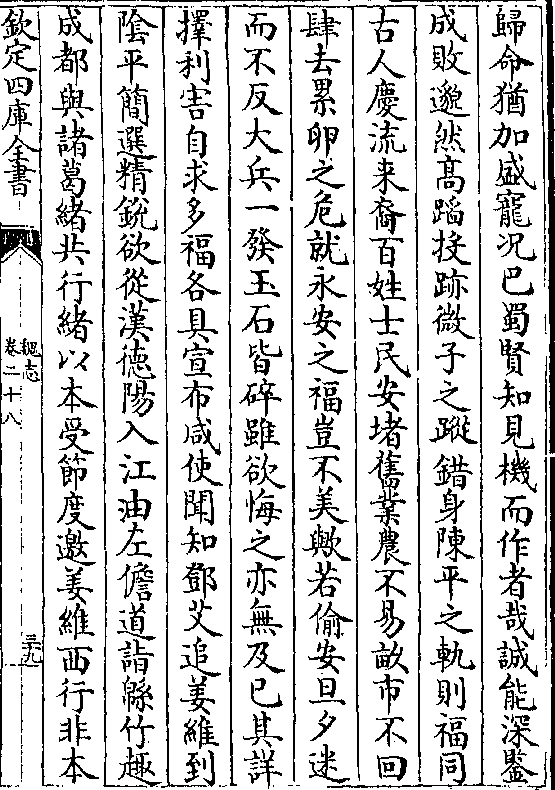 歸命猶加盛寵况巴蜀賢知見機而作者哉誠能深鑒
成敗邈然高蹈投跡微子之蹤錯身陳平之軌則福同
古人慶流来裔百姓士民安堵舊業農不易畝市不回
肆去累卵之危就永安之福豈不美歟若偷安旦夕迷
而不反大兵一發玉石皆碎雖欲悔之亦無及已其詳
擇利害自求多福各具宣布咸使聞知鄧艾追姜維到
陰平簡選精銳欲從漢德陽入江油左儋道詣緜竹趣
成都與諸葛緒共行緒以本受節度邀姜維西行非本
欽定四庫全書
魏志
卷二十八
三十九